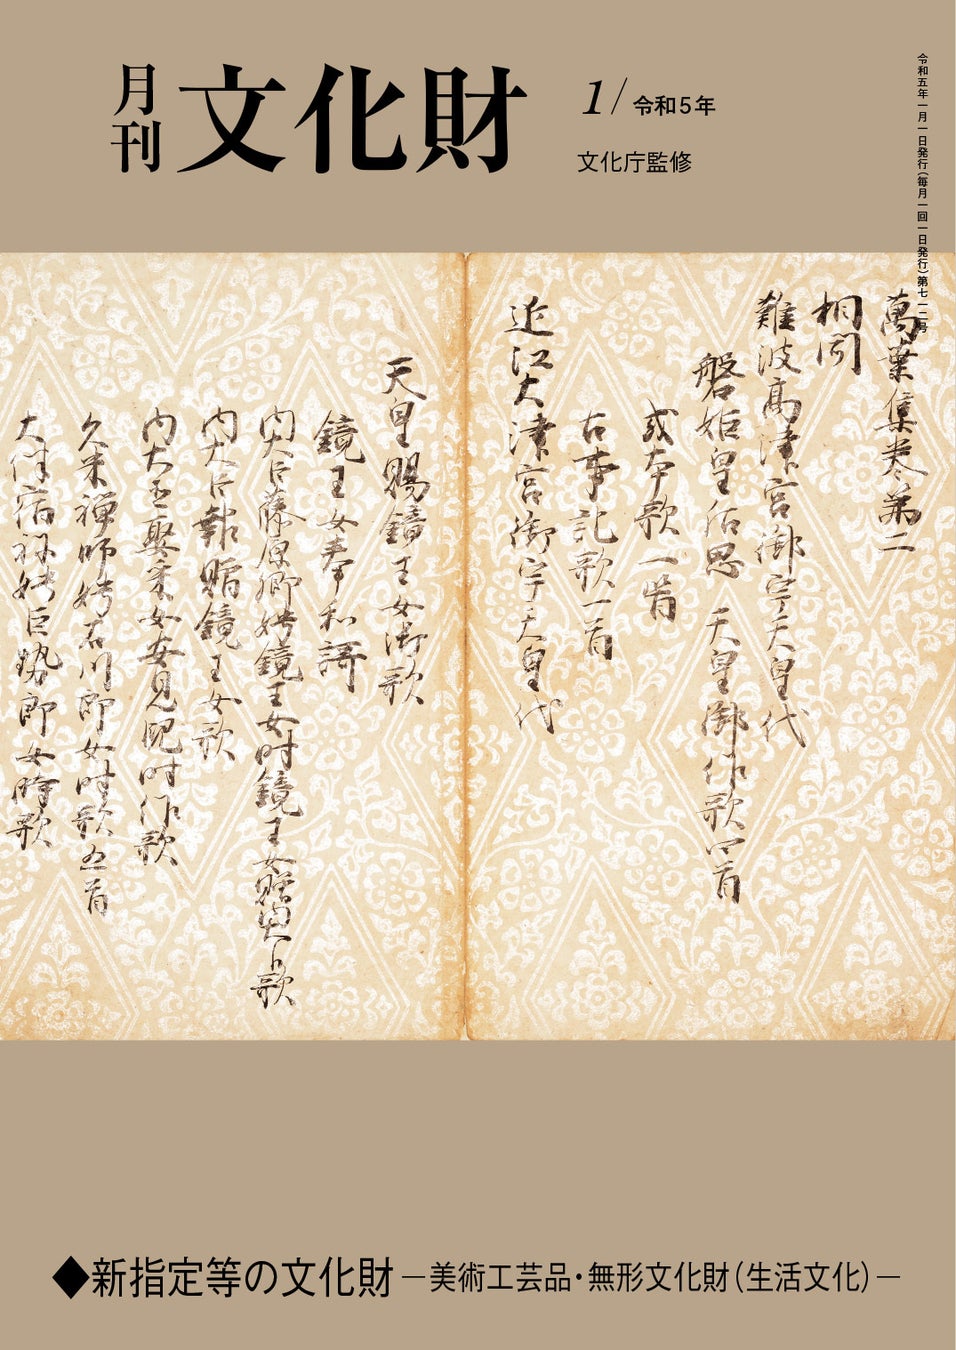 月刊 文化財
1/令和5年
文化庁監修
令和五年一月一日発行(毎月一回一日発行)第七一二号
萬葉集巻第二
相聞
難波高津宮御宇天皇代
磐姫皇后思 天皇御作歌四首
或本歌一首
古事記歌一首
近江大津宮御宇天皇代
天皇賜鏡王女御歌
鏡王女奉和謌
内大臣藤原卿娉鏡王女時鏡王女贈内大臣歌
内大臣報贈鏡王女歌
内大臣娶采女安見児時作歌
久米禅師娉石川郎女時歌五首
大伴宿祢娉巨勢郎女時歌
◆新指定等の文化財 ―美術工芸品・無形文化財(生活文化)―